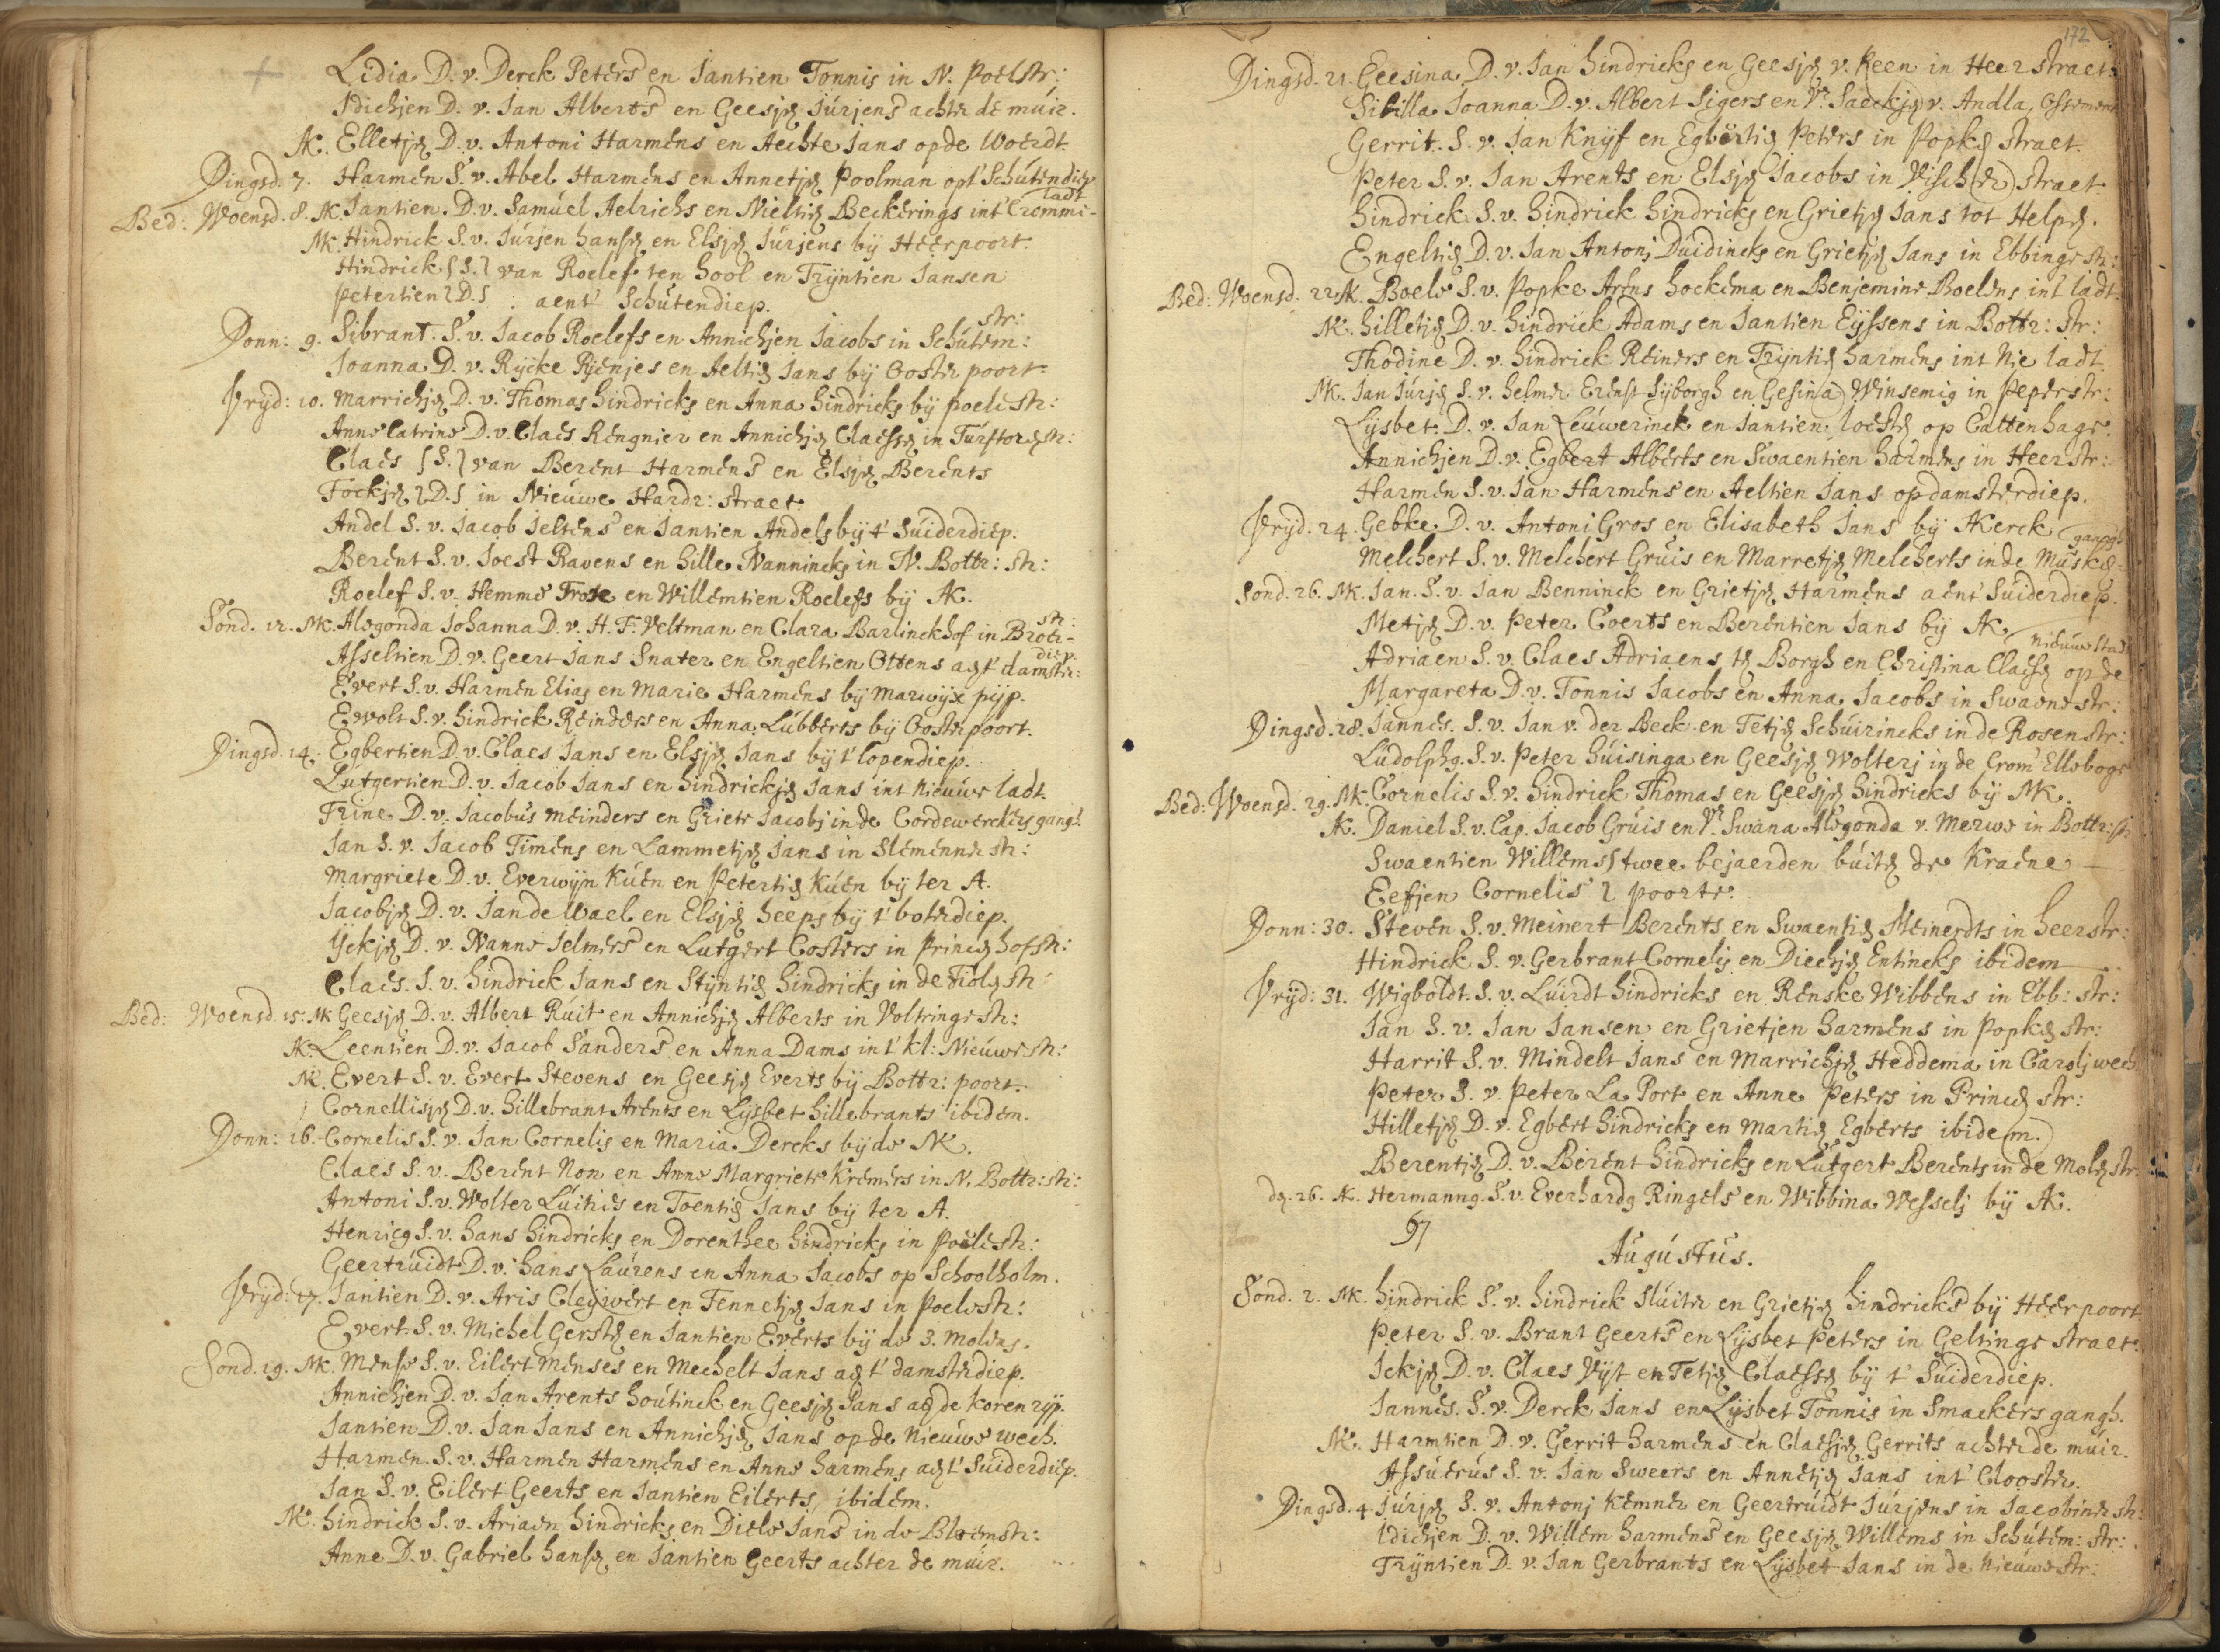 Lidia D. v. Derck Peters en Jantien Tonnis in N. Poelstr:
Idichjen D. v. Jan Alberts en Geesjen Jurjens achter de muir.
AK. Elletjen D. v. Antoni Harmens en Aechte Jans opde Woerdt.
Dingsd. 7. Harmen S. v. Abel Harmens en Annetjen Poolman opt' Schutendiep
Bed: Woensd. 8. AK Jantien. D. v. Samuel Aelrichs en Nieltien Beckerings int' Crommi-ladt
MK. Hindrick S. v. Jurjen hansen en Elsjen Jurjens bij Heerpoort.
Hindrick {S.} van Roelef ten hool en Trijntien Jansen
Petertien {D.} aent' Schutendiep.
Donn: 9. Sibrant. S. v. Jacob Roelefs en Annichjen Jacobs in Schutem: str:
Joanna D. v. Rijcke Rijenjes en Aeltien Jans bij Ooster poort.
Vryd: 10. Marrichjen D. v. Thomas hindricks en Anna hindricks bij poelestr:
Anne Catrine D. v. Claes Rengnier en Annichjen Claessen in Turftorenstr:
Claes {S.} van Berent Harmens en Elsjen Berents
Fockjen {D.} in Nieuwe Hardr: straet.
Andel S. v. Jacob Jeltens en Jantien Andels bij t' Suiderdiep.
Berent S. v. Joest Ravens en hille Nannincks in N. Bottr: str:
Roelef S. v. Hemme Frose en Willemtien Roelefs bij AK.
Sond. 12. MK. Alegonda Johanna D. v. H. F. Veltman en Clara Barlinckhof in Broer-str:
Asseltien D. v. Geert Jans Snater en Engeltien Ottens aen t' damster:diep.
Evert S. v. Harmen Elias en Marie Harmens bij Marwijx pijp.
Ewolt S. v. hindrick Reinders en Anna Lubberts bij Oosterpoort.
Dingsd. 14. Egbertien D. v. Claes Jans en Elsjen Jans bij t' lopendiep.
Lutgertien D. v. Jacob Jans en hindrickjen Jans int nieuwe ladt.
Trine D. v. Jacobus Meinders en Griete Jacobs in de Cordewerckers gangh.
Jan S. v. Jacob Timens en Lammetjen Jans in Slemenner str:
Margriete D. v. Everwijn Kuen en Petertien Kuen bij ter A.
Jacobjen D. v. Jan de Wael en Elsjen heeps bij t' boterdiep.
Yckjen D. v. Nanne Jelmers en Lutgert Costers in Princen hofstr:
Claes. S. v. hindrick Jans en Stijntien hindricks in de Fiolenstr
Bed: Woensd. 15. MK Geesjen D. v. Albert Ruit en Annichjen Alberts in Volteringestr:
AK. Leentien D. v. Jacob Sanders en Anna Dams in t' kl: Nieuwe str:
NK. Evert S. v. Evert Stevens en Geesjen Everts bij Bottr: poort.
Cornellisjen D. v. hillebrant Arents en Lijsbet hillebrants ibidem.
Donn: 16. Cornelis S. v. Jan Cornelis en Maria Dercks bij de NK.
Claes S. v. Berent Non en Anne Margriete Kremers in N. Bottr: str:
Antoni S. v. Wolter Luities en Toentien Jans bij ter A.
Henricus S. v. hans hindricks en Dorenthee hindricks in poelestr:
Geertruidt D. v. hans Laurens en Anna Jacobs op Schoolholm.
Vryd: 17. Jantien D. v. Aris Cleijwert en Fennetjen Jans in Poelestr:
Evert. S. v. Michel Gersten en Jantien Everts bij de 3. Molens.
Sond. 19. MK. Mense S. v. Eilert Menses en Mechelt Jans aen t' damsterdiep.
Annichjen D. v. Jan Arents houtinck en Geesjen Jans aen de koren rijp.
Jantien D. v. Jan Jans en Annichjen Jans op de nieuwe wech.
Harmen. S. v. Harmen Harmens en Anne harmens aen t' Suiderdiep.
Jan S. v. Eilert Geerts en Jantien Eilerts, ibidem.
NK. hindrick S. v. Ariaen hindricks en Diele Jans in de Bloemstr:
Anne D. v. Gabriel hansen en Jantien Geerts achter de muir.
172
Dingsd. 21. Geesina D. v. Jan hindricks en Geesjen v. Reen in Heerstraet:
Sibilla Joanna D. v. Albert Sigers en Vr. Saeckjen v. Andla,
Gerrit. S. v. Jan Knijf en Egbertien Peters in Popken straet.
Peter S. v. Jan Arents en Elsjen Jacobs in Visch(er) straet
hindrick S. v. hindrick hindricks en Grietjen Jans tot Helpen.
Engeltien D. v. Jan Antonj Duidincks en Grietjen Jans in Ebbingestr:
Bed: Woensd. 22. AK. Boele S. v. Popke Arens hockema en Benjemine Boelens int ladt.
NK. hilletien D. v. hindrick Adams en Jantien Eijssens in Bottr: str:
Thodine D. v. hindrick Reiners en Trijntien harmens int Nie ladt.
MK. Jan Jurjen S. v. helmer Ernst Sijborgh en Gesin(a) Winsemig in Peperstr:
Lijsbet. D. v. Jan Leuwerinck en Jantien loesten op Cattenhage.
Annichjen D. v. Egbert Alberts en Swaentien harmens in Heerstr:
Harmen S. v. Jan Harmens en Aeltien Jans op damsterdiep.
Vryd. 24. Gebke D. v. Antoni Gros en Elisabeth Jans bij AKerck
Melchert S. v. Melchert Gruis en Marretjen Melcherts in de Musken-gangh
Sond. 26. MK. Jan. S. v. Jan Benninck en Grietjen Harmens aent Suiderdiep.
Metjen D. v. Peter Coerts en Berentien Jans bij AK
Adriaen S. v. Claes Adriaens ten Borgh en Christina Claesen op de nieuwstadt
Margareta D. v. Tonnis Jacobs en Anna Jacobs in Swaenestr:
Dingsd. 28. Jannes. S. v. Jan v. der Beck en Tetjen Schuirincks in de Rosenstr:
Ludolphus. S. v. Peter huisinga en Geesjen Wolterj in de Crom' Elleboge
Bed: Woensd. 29. MK. Cornelis S. v. hindrick Thomas en Geesjen hindricks bij MK.
AK. Daniel S. v. Cap. Jacob Gruis en Vr. Swana Alegonda v. Merwe in Bottr: str
Swaentien Willems { twee bejaerden buiten de Kraene
Eefjen Cornelis { poorte.
Donn: 30. Steven S. v. Meinert Berents en Swaentien Meinerdts in heerstr:
Hindrick S. v. Gerbrant Cornelis en Diechjen Entincks ibidem
Vryd: 31. Wigboldt. S. v. Luirdt hindricks en Renske Wibbens in Ebb: str:
Jan S. v. Jan Jansen en Grietjen harmens in Popken str:
Harrit S. v. Mindelt Jans en Marrichjen Heddema in Carolj wech
Peter S. v. Peter La Port en Anne Peters in Princen str:
Hilletjen D. v. Egbert hindricks en Martien Egberts ibide(m.)
Berentien D. v. Berent hindricks en Lutgert Berents in de Molenstr.
den. 26. AK. Hermannus. S. v. Everhardus Ringels en Wibbina Wesselj bij AK.
97
Augustus.
Sond. 2. MK. hindrick S. v. hindrick Sluiter en Grietjen hindricks bij Heerpoort
Peter S. v. Brant Geerts en Lijsbet Peters in Geltinge straet.
Ickjen D. v. Claes Vijt en Tetjen Claessen bij t' Suiderdiep.
Jannes. S. v. Derck Jans en Lijsbet Tonnis in Smackers gangh.
NK. Harmtien D. v. Gerrit harmens en Claesjen Gerrits achter de muir.
Assuerus S. v. Jan Sweers en Annetjen Jans int' Clooster.
Dingsd. 4. Jurjen S. v. Antonj Kemner en Geertruidt Jurjens in Jacobinerstr:
Idichjen D. v. Willem harmens en Geesjen Willems in Schutem: str:
Trijntien D. v. Jan Gerbrants en Lijsbet Jans in de Nieuwestr: